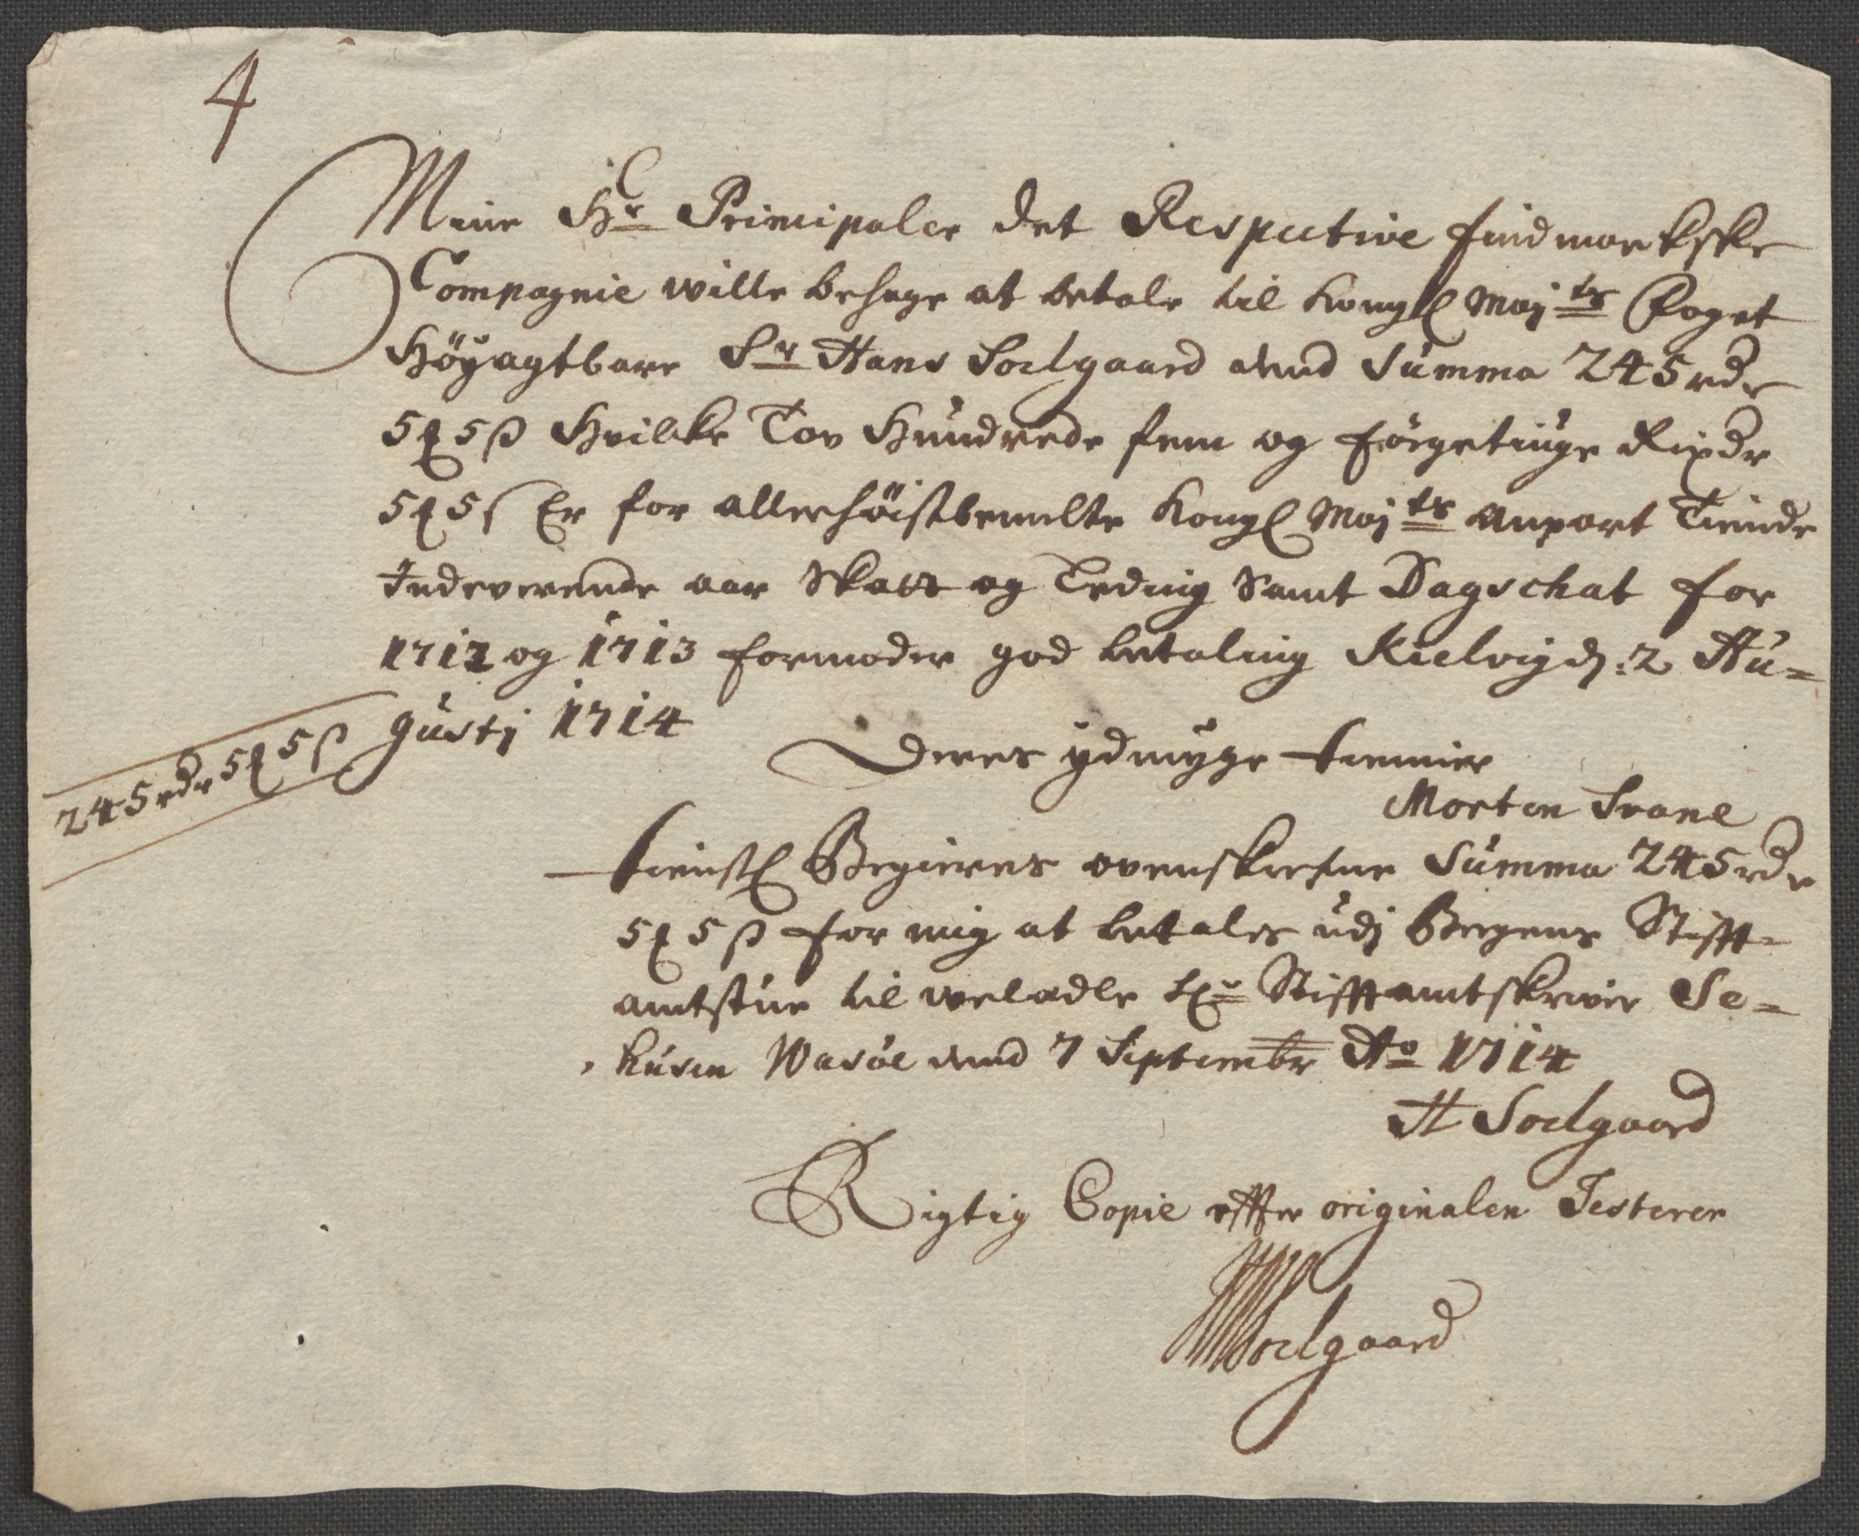 4
Mine Hr Principaler det Respective findmarkske
Compagnie wille behage at betale til Kongl Maj ts Foget
Höyagtbare Sr Hans Soelgaard dend Summa 245 rdr
5 ꝳ 5 ß Hvilke Tov Hundrede fem og förgetiuge Rixdr
5 ꝳ 5 ß Er for allerhöistbemelte Kongl Maj ts anpart Tiende
Indeverende aar Skatt og Leding Samt Dagschat for
1712 og 1713 formoder god betaling Kielvig d: 2 Au-
gustj 1714
245 rdr 5 ꝳ 5 ß
Deres ydmyge tienner
Morten Svane
tienstl Begieres ovenskrefne Summa 245 rdr
5 ꝳ 5 ß for mig at betales udj Bergens Stifft-
amtstue til weladle Hr Stifftamtskriver Se-
husen Wasöe dend 7 Septembr Ao 1714
H Soelgaard
Rigtig Copie effter originalen Testerer
HSoelgaard